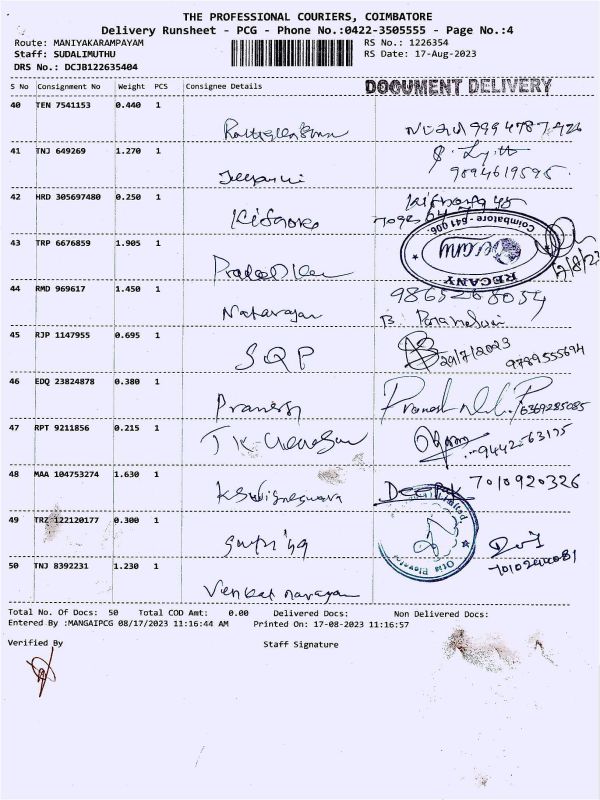 THE PROFESSIONAL COURIERS, COIMBATORE
Delivery Runsheet - PCG - Phone No.:0422-3505555 - Page No.:4
Route: MANIYAKARAMPAYAM RS No.: 1226354
Staff: SUDALIMUTHU RS Date: 17-Aug-2023
DRS No.: DCJB122635404
S No Consignment No Weight PCS Consignee Details DOCUMENT DELIVERY
40 TEN 7541153 0.440 1
41 TNJ 649269 1.270 1
9894619595
42 HRD 305697480 0.250 1
Kishore
Coimbatore-641 006
43 TRP 6676859 1.905 1
REGANY
44 RMD 969617 1.450 1
9865268054
Natarajan
45 RJP 1147955 0.695 1
SQP 29/7/2023 9789555694
46 EDQ 23824878 0.380 1
Pranesh 6369285085
47 RPT 9211856 0.215 1
9442-63175
48 MAA 104753274 1.630 1
Deepak 7010920326
K Svigneswara
49 TRZ 122120177 0.300 1
50 TNJ 8392231 1.230 1
Venkat narayan
Total No. Of Docs: 50 Total COD Amt: 0.00 Delivered Docs: Non Delivered Docs:
Entered By :MANGAIPCG 08/17/2023 11:16:44 AM Printed On: 17-08-2023 11:16:57
Verified By Staff Signature